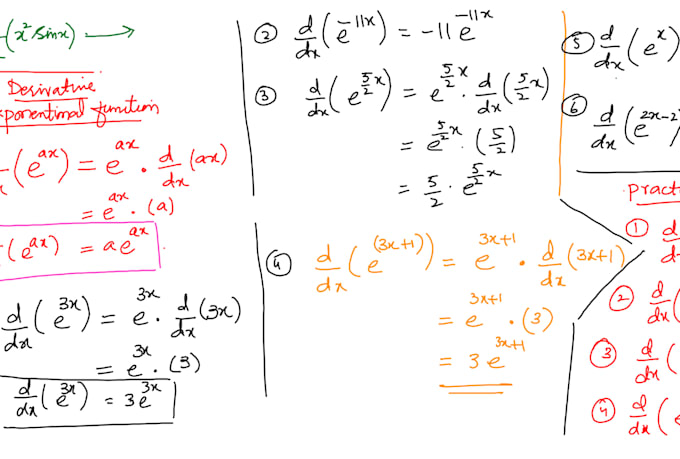 (x² sinx) →
Derivative
ponential function
(e^{ax}) = e^{ax} · d/dx (ax)
= e^{ax} · (a)
(e^{ax}) = a e^{ax}
d/dx (e^{3x}) = e^{3x} · d/dx (3x)
= e^{3x} · (3)
d/dx (e^{3x}) = 3e^{3x}
② d/dx (e^{-11x}) = -11 e^{-11x}
③ d/dx (e^{5/2 x}) = e^{5/2 x} · d/dx (5/2 x)
= e^{5/2 x} · (5/2)
= 5/2 · e^{5/2 x}
④ d/dx (e^{(3x+1)}) = e^{3x+1} · d/dx (3x+1)
= e^{3x+1} · (3)
= 3 e^{3x+1}
⑤ d/dx (e^x)
⑥ d/dx (e^{2x-2
Pract
① d/d
② d/dx (
③ d/dx (
④ d/dx (e